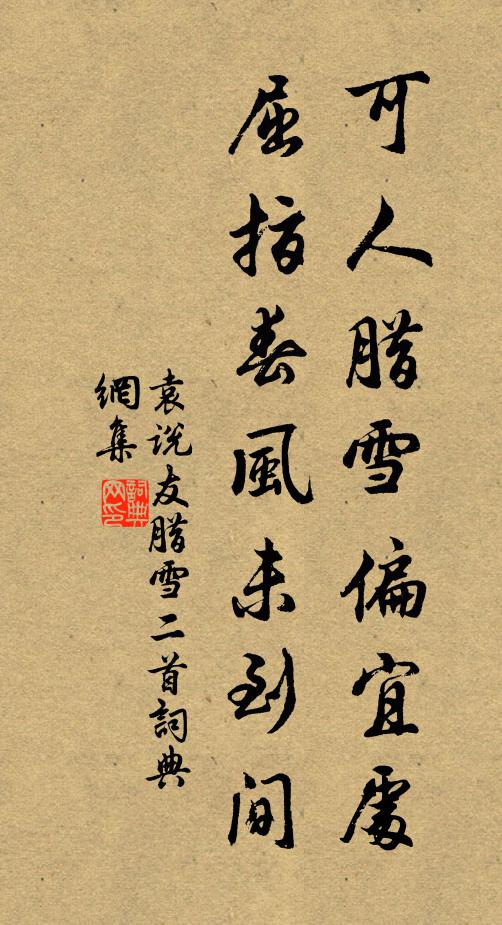 可人腊雪偏宜處
屈指春風未到間
袁说友腊雪二首詞典
網集
詞典
网印